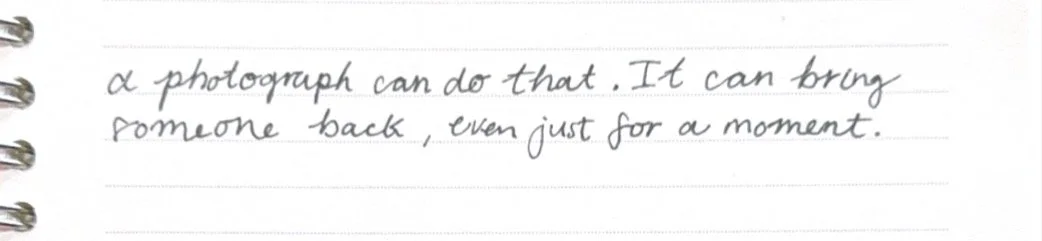 a photograph can do that. It can bring
someone back, even just for a moment.